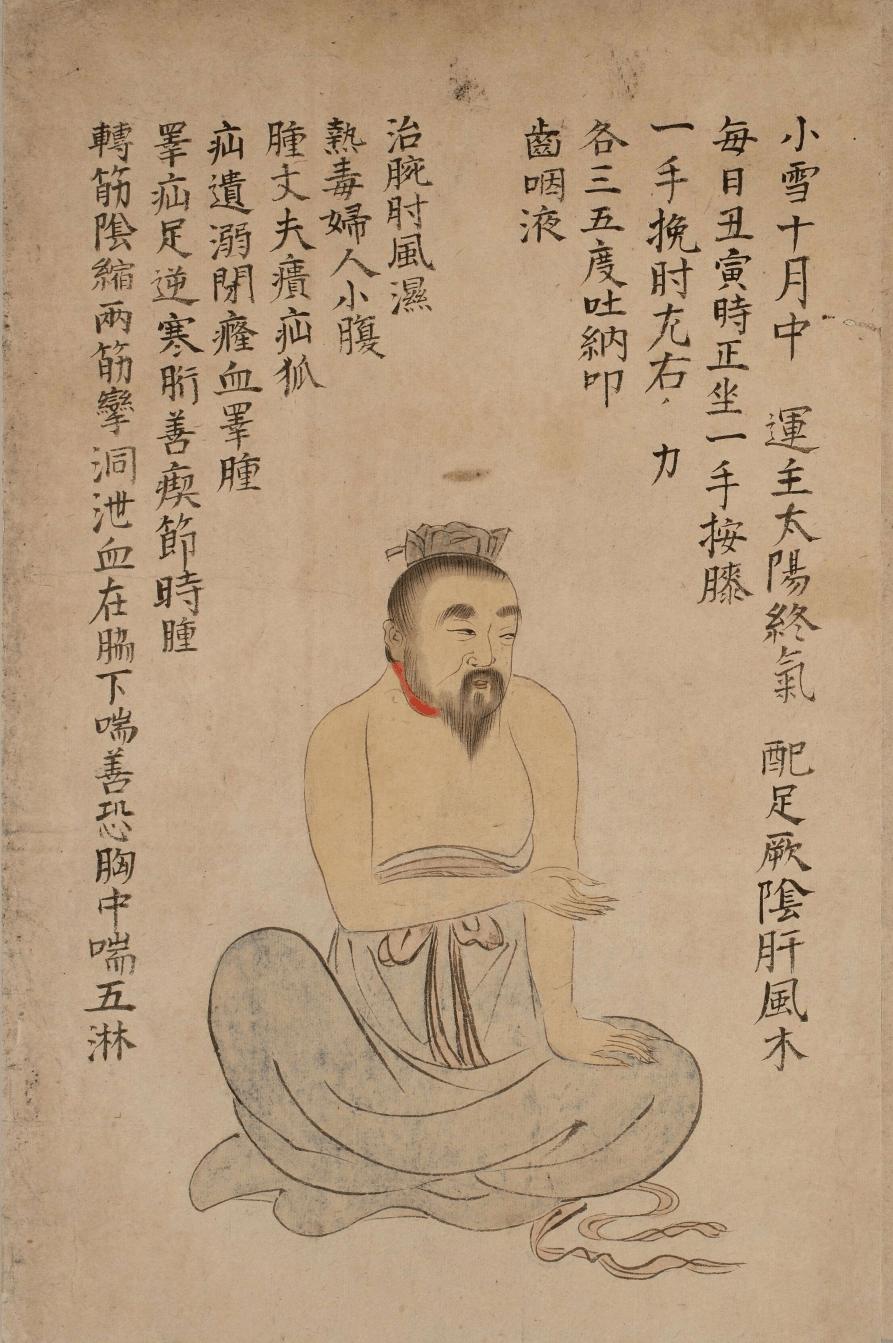 小雪十月中　運主太陽終氣　配足厥陰肝風木
每日丑寅時正坐一手按膝
一手挽肘左右、力
各三五度吐納叩
齒咽液
治腕肘風濕
熱毒婦人小腹
腫丈夫㿉疝狐
疝遺溺閉癃血睪腫
睪疝足逆寒胻善瘈節時腫
轉筋陰縮兩筋攣洞泄血在脇下喘善恐胸中喘五淋